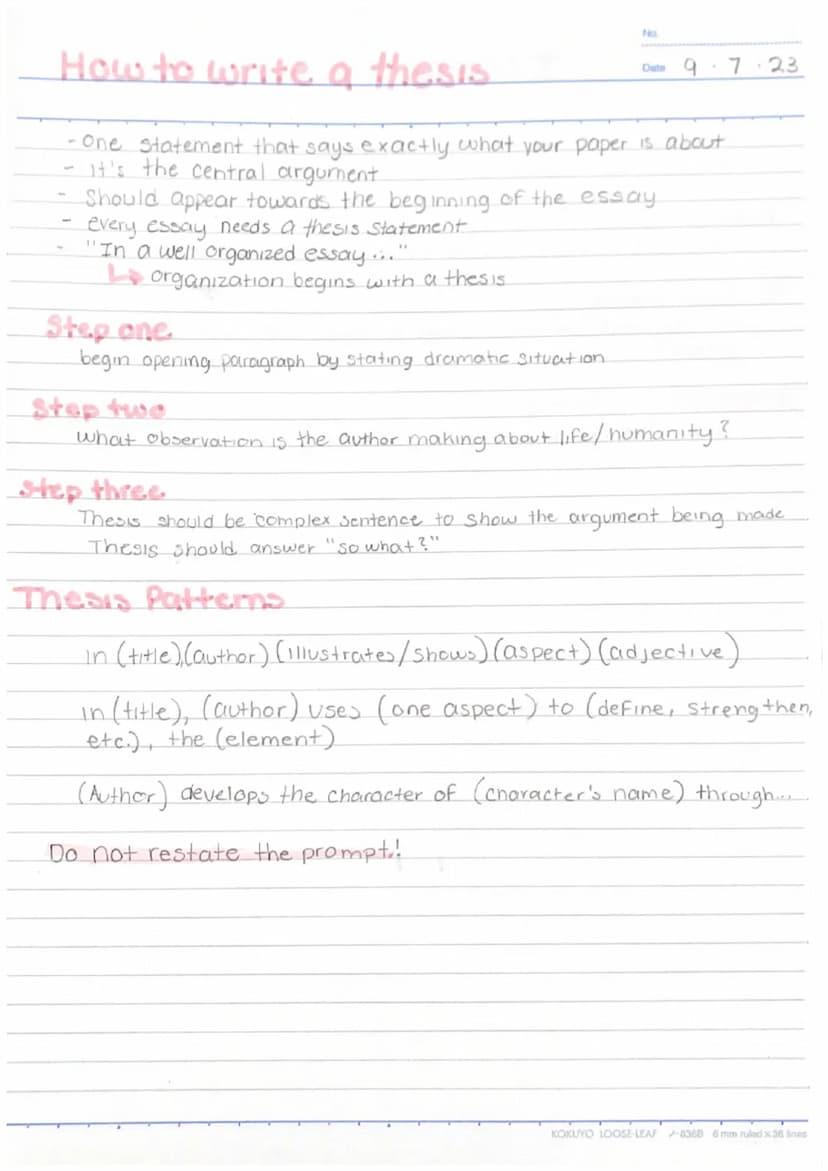 No.
How to write a thesis
Date 9 · 7 · 23
- One statement that says exactly what your paper is about
- It's the central argument
- Should appear towards the beginning of the essay
- every essay needs a thesis statement
- "In a well organized essay..."
↳ organization begins with a thesis
Step one
begin opening paragraph by stating dramatic situation
Step two
what observation is the author making about life/humanity?
Step three
Thesis should be complex sentence to show the argument being made
Thesis should answer "so what?"
Thesis Patterns
in (title),(author) (illustrates/shows) (aspect) (adjective)
in (title), (author) uses (one aspect) to (define, strengthen,
etc.), the (element)
(Author) develops the character of (character's name) through...
Do not restate the prompt.!
KOKUYO LOOSE-LEAF ノ-836B 6 mm ruled × 36 lines